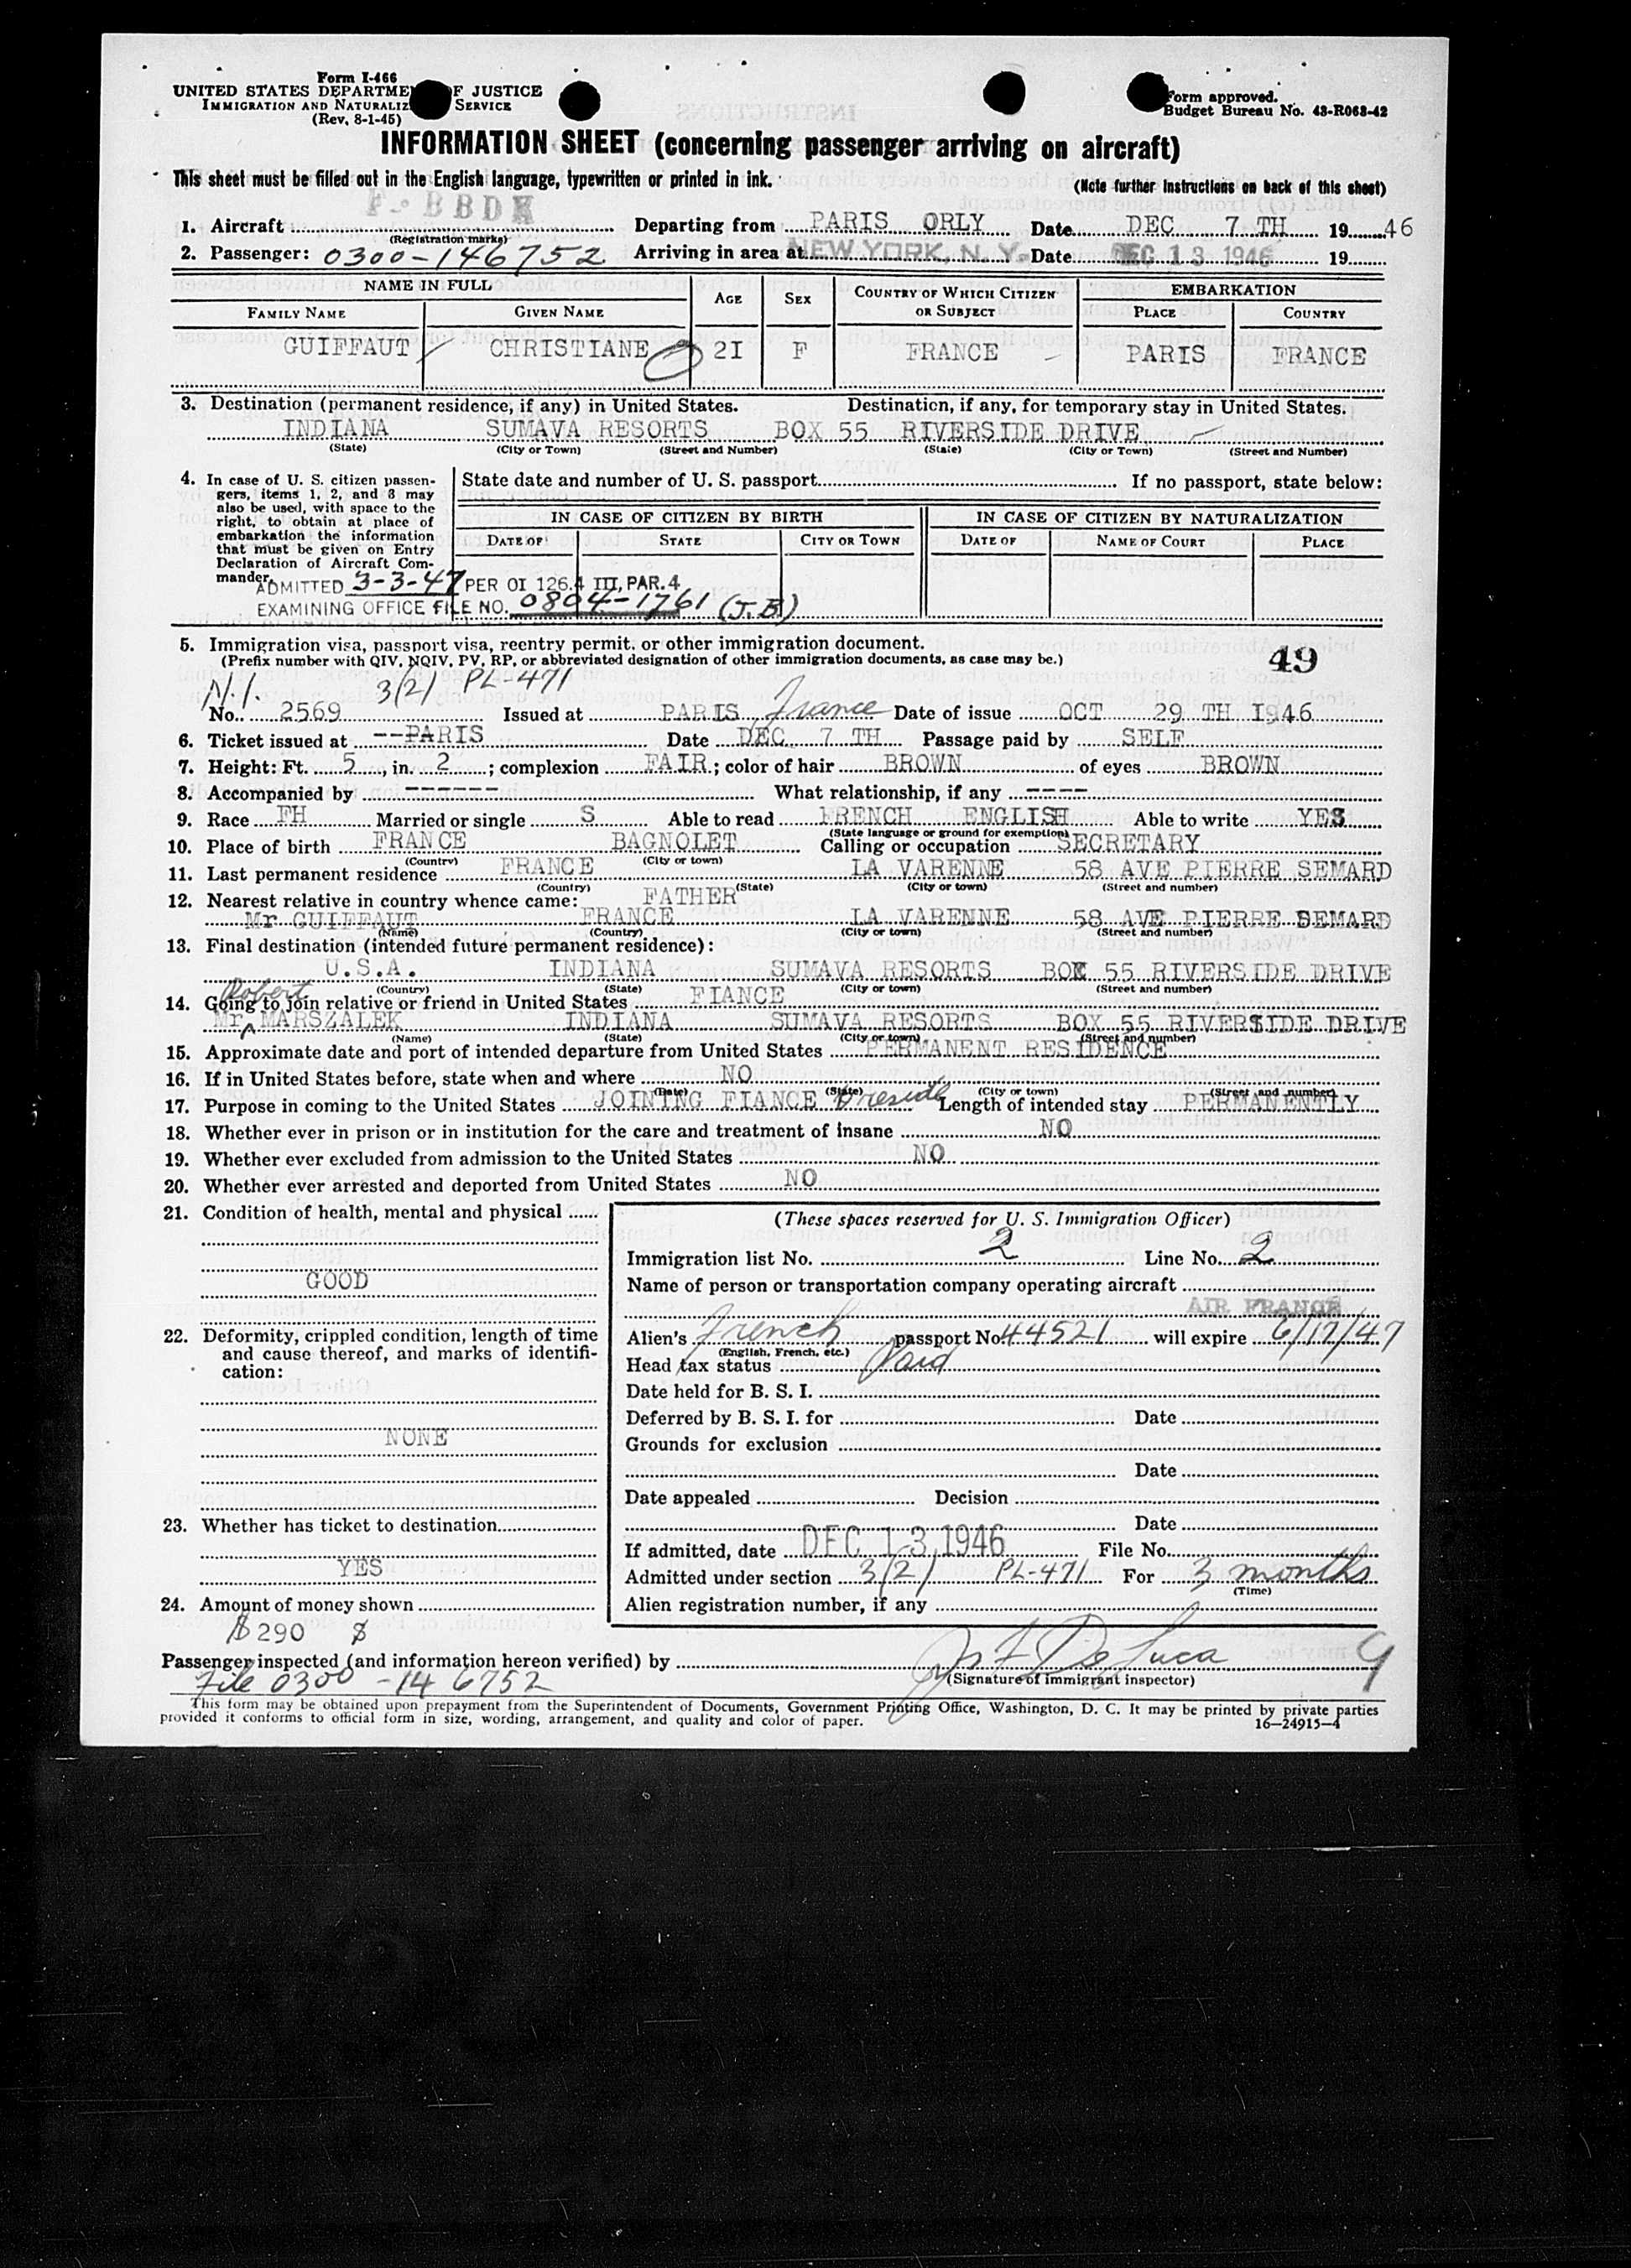 Form I-466
UNITED STATES DEPARTME F JUSTICE
IMMIGRATION AND NATURALIZ SERVICE
(Rev. 8-1-45)
Form approved.
Budget Bureau No. 43-R063-42
INFORMATION SHEET (concerning passenger arriving on aircraft)
This sheet must be filled out in the English language, typewritten or printed in ink.
(Note further instructions on back of this sheet)
1. Aircraft F-BBDK Departing from PARIS ORLY Date DEC 7 TH 19 46
(Registration marks)
2. Passenger: 0300-146752 Arriving in area at NEW YORK, N. Y. Date DEC 13 1946 19
NAME IN FULL AGE SEX COUNTRY OF WHICH CITIZEN OR SUBJECT EMBARKATION
FAMILY NAME GIVEN NAME PLACE COUNTRY
GUIFFAUT CHRISTIANE 2I F FRANCE PARIS FRANCE
3. Destination (permanent residence, if any) in United States. Destination, if any, for temporary stay in United States.
INDIANA SUMAVA RESORTS BOX 55 RIVERSIDE DRIVE
(State) (City or Town) (Street and Number) (State) (City or Town) (Street and Number)
4. In case of U. S. citizen passengers, items 1, 2, and 3 may also be used, with space to the right, to obtain at place of embarkation the information that must be given on Entry Declaration of Aircraft Commander.
State date and number of U. S. passport If no passport, state below:
IN CASE OF CITIZEN BY BIRTH IN CASE OF CITIZEN BY NATURALIZATION
DATE OF STATE CITY OR TOWN DATE OF NAME OF COURT PLACE
ADMITTED 3-3-47 PER OI 126.4 III, PAR. 4
EXAMINING OFFICE FILE NO. 0804-1761 (J.B)
5. Immigration visa, passport visa, reentry permit, or other immigration document.
(Prefix number with QIV, NQIV, PV, RP, or abbreviated designation of other immigration documents, as case may be.)
49
N.I. 3(2) PL-471
No. 2569 Issued at PARIS France Date of issue OCT 29 TH I946
6. Ticket issued at --PARIS Date DEC 7 TH Passage paid by SELF
7. Height: Ft. 5, in. 2; complexion FAIR; color of hair BROWN of eyes BROWN
8. Accompanied by ------ What relationship, if any ----
9. Race FH Married or single S Able to read FRENCH ENGLISH Able to write YES
(State language or ground for exemption)
10. Place of birth FRANCE BAGNOLET Calling or occupation SECRETARY
(Country) (City or town)
11. Last permanent residence FRANCE LA VARENNE 58 AVE PIERRE SEMARD
(Country) (State) (City or town) (Street and number)
12. Nearest relative in country whence came: FATHER
Mr GUIFFAUT FRANCE LA VARENNE 58 AVE PIERRE SEMARD
(Name) (Country) (City or town) (Street and number)
13. Final destination (intended future permanent residence):
U.S.A. INDIANA SUMAVA RESORTS BOX 55 RIVERSIDE DRIVE
(Country) (State) (City or town) (Street and number)
14. Going to join relative or friend in United States FIANCE
Mr Robert MARSZALEK INDIANA SUMAVA RESORTS BOX 55 RIVERSIDE DRIVE
(Name) (State) (City or town) (Street and number)
15. Approximate date and port of intended departure from United States PERMANENT RESIDENCE
16. If in United States before, state when and where NO
(Date) (State) (City or town) (Street and number)
17. Purpose in coming to the United States JOINING FIANCE reside Length of intended stay PERMANENTLY
18. Whether ever in prison or in institution for the care and treatment of insane NO
19. Whether ever excluded from admission to the United States NO
20. Whether ever arrested and deported from United States NO
21. Condition of health, mental and physical
GOOD
22. Deformity, crippled condition, length of time and cause thereof, and marks of identification:
NONE
23. Whether has ticket to destination
YES
24. Amount of money shown
$ 290 $
(These spaces reserved for U. S. Immigration Officer)
Immigration list No. 2 Line No. 2
Name of person or transportation company operating aircraft
AIR FRANCE
Alien's French passport No. 44521 will expire 6/17/47
(English, French, etc.)
Head tax status Paid
Date held for B. S. I.
Deferred by B. S. I. for Date
Grounds for exclusion
Date
Date appealed Decision
Date
If admitted, date DEC 13 1946 File No.
Admitted under section 3(2) PL-471 For 3 months
(Time)
Alien registration number, if any
Passenger inspected (and information hereon verified) by De Luca 9
(Signature of immigrant inspector)
File 0300-146752
This form may be obtained upon prepayment from the Superintendent of Documents, Government Printing Office, Washington, D. C. It may be printed by private parties
provided it conforms to official form in size, wording, arrangement, and quality and color of paper.
16—24915-4